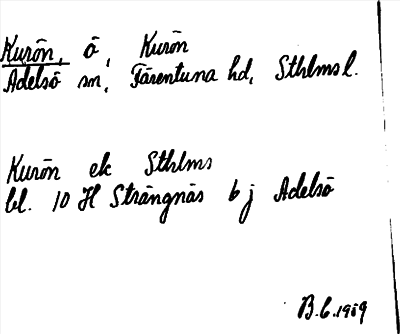 Kurön, ö, Kurön
Adelsö sn, Färentuna hd, Sthlms l.
Kurön ek Sthlms
bl. 10 H Strängnäs b j Adelsö
B.C. 1909